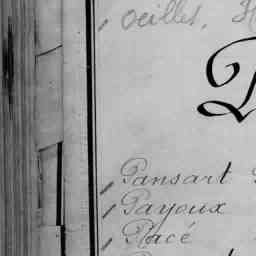 Oeillet, H
P
Pansart
Payoux
Placé